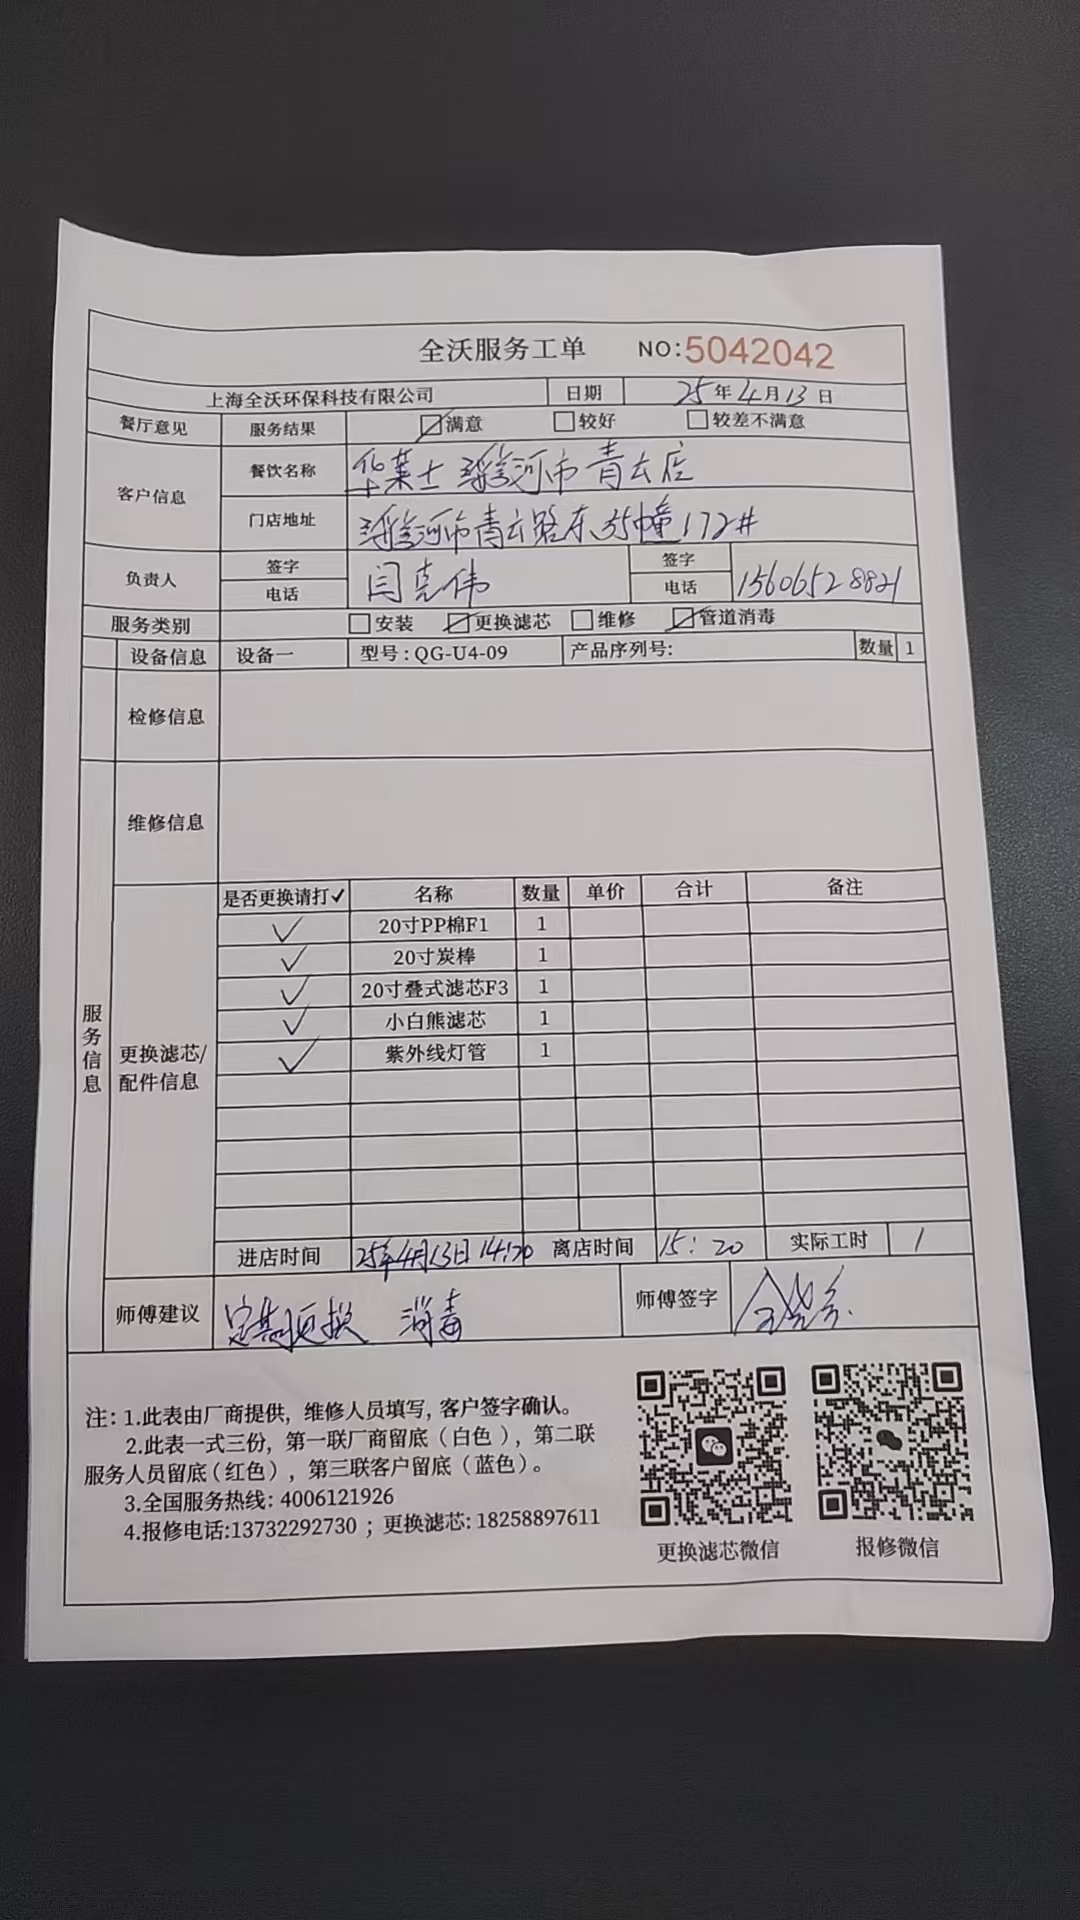 全沃服务工单 NO:5042042
上海全沃环保科技有限公司 日期 25年4月13日
餐厅意见 服务结果 满意 较好 较差不满意
客户信息 餐饮名称 华莱士 漯河市青云店
门店地址 漯河市青云路东35幢172#
负责人 签字 电话 闫克伟 签字 电话 15606528821
服务类别 安装 更换滤芯 维修 管道消毒
设备信息 设备一 型号:QG-U4-09 产品序列号: 数量 1
检修信息
维修信息
服务信息
更换滤芯/配件信息
是否更换请打✓ 名称 数量 单价 合计 备注
✓ 20寸PP棉F1 1
✓ 20寸炭棒 1
✓ 20寸叠式滤芯F3 1
✓ 小白熊滤芯 1
✓ 紫外线灯管 1
进店时间 25年4月13日 14:20 离店时间 15:20 实际工时 1
师傅建议 定期更换 消毒 师傅签字
注:1.此表由厂商提供, 维修人员填写, 客户签字确认。
2.此表一式三份, 第一联厂商留底(白色), 第二联
服务人员留底(红色), 第三联客户留底(蓝色)。
3.全国服务热线: 4006121926
4.报修电话:13732292730 ; 更换滤芯: 18258897611
更换滤芯微信 报修微信